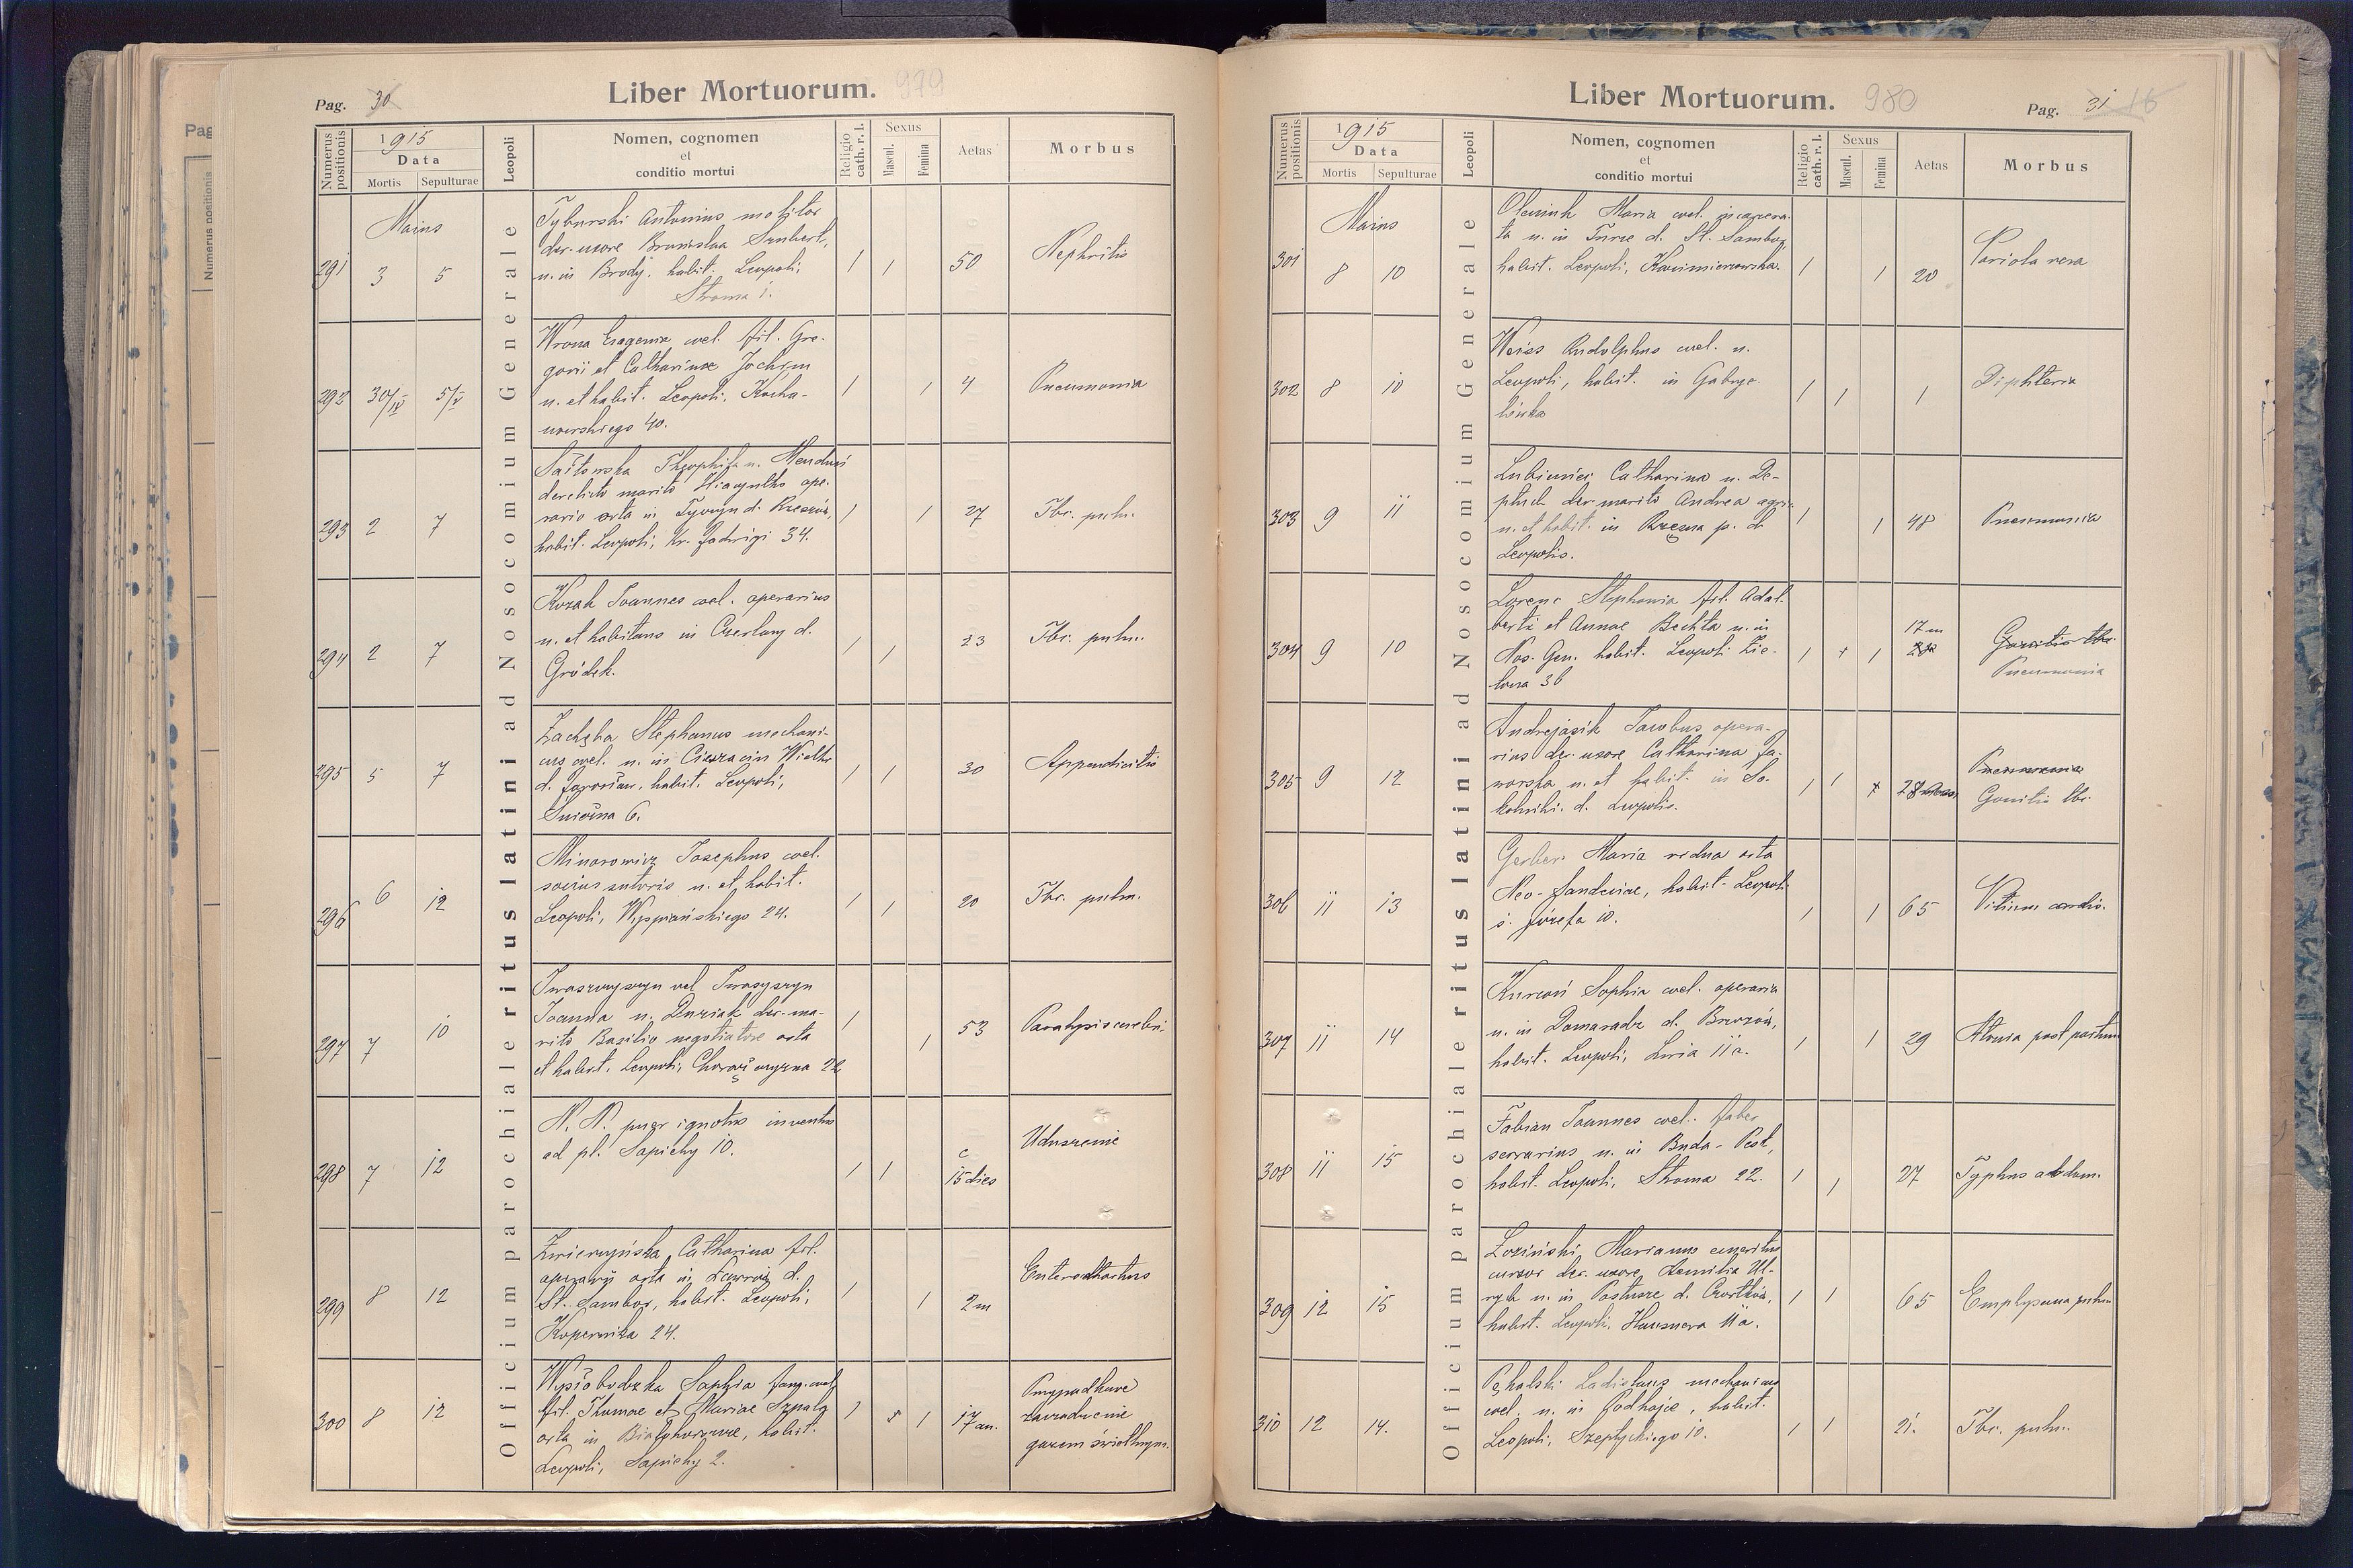 Liber Mortuorum. 979
Pag. 30
Numerus positionis
1915
Data
Mortis Sepulturae
Leopoli
Nomen, cognomen
et
conditio mortui
Religio cath. r. l.
Sexus
Mascul. Femina
Aetas
Morbus
Officium parochiale ritus latini ad Nosocomium Generale
Maius
291 3 5
Tyburski Antonius molitor
der. uxore Bronislaa Szubert,
n. in Brody. habit. Leopoli,
Stroma 1.
1 1 50 Nephritis
292 30/IV 5/V
Wrona Eugenia coel. fil. Gre-
gorii et Catharinae Jochym
n. et habit. Leopoli, Kocha-
nowskiego 40.
1 1 4 Pneumonia
293 2 7
Theophila n.
derelicto marito Hiacyntho ope-
rario orta in Tyczyn d. Rzeszów,
habit. Leopoli, Kr. Jadwigi 34.
1 1 27 Tbc. pulm.
294 2 7
Kozak Joannes coel. operarius
n. et habitans in Czerlany d.
Gródek.
1 1 23 Tbc. pulm.
295 5 7
Stephanus mechani-
cus coel. n. in
d. Jarosłau, habit. Leopoli,
Śnieżna 6.
1 1 30 Appendicitis
296 6 12
Minorowicz Josephus coel.
socius sutoris n. et habit.
Leopoli, Wyspiańskiego 24.
1 1 20 Tbc. pulm.
297 7 10
Iwaszczyszyn vel Iwasyszyn
Joanna n. der. ma-
rito Basilio negotiatore orta
et habit. Leopoli, 22
1 1 53 Paralysis cerebri
298 7 12
N. N. puer ignotus inventus
ad pl. Sapiehy 10.
1 1 c 15 dies Uduszenie
299 8 12
Zwierzyńska Catharina fil.
operarii orta in d.
St. Sambor, habit. Leopoli,
Kopernika 24.
1 1 2m Enterocatarhus
300 8 12
Wysłobodzka Sophia coel.
fil. Thomae et Mariae
orta in habit.
Leopoli, Sapiehy 2.
1 1 17 an.
Przypadkowe
zaczadzenie
gazem świetlnym.
Liber Mortuorum. 980
Pag. 31 16
Numerus positionis
1915
Data
Mortis Sepulturae
Leopoli
Nomen, cognomen
et
conditio mortui
Religio cath. r. l.
Sexus
Mascul. Femina
Aetas
Morbus
Officium parochiale ritus latini ad Nosocomium Generale
Maius
301 8 10
Oleniuk Maria coel.
n. in Turze d. St. Sambor,
habit. Leopoli, Kazimierzowska.
1 1 20 Variola vera
302 8 10
Weiss Rudolphus coel. n.
Leopoli, habit. in Gabrye-
lówka
1 1 1 Diphteria
303 9 11
Catharina n.
der. marito Andrea agri-
n. et habit. in Rzęsna p. d.
Leopolis.
1 1 48 Pneumonia
304 9 10
Lorenc Stephania fil. Adal-
berti et Annae Bechta n. in
Nos. Gen. habit. Leopoli Zie-
lona 36
1 1 17 m
Gonitis tbc.
Pneumonia
305 9 12
Andrejasik Jacobus opera-
rius der. uxore Catharina Ja-
worska n. et habit. in So-
kolniki. d. Leopolis.
1 1 28
Pneumonia
Gonitis tbc.
306 11 13
Gerber Maria vidua orta
Neo-Sandeciae, habit. Leopoli
ś. Józefa 10.
1 1 65 Vitium cordis.
307 11 14
Kurcoń Sophia coel. operaria
n. in Domaradz d. Brzozów,
habit. Leopoli, 11a.
1 1 29 Atonia post partum
308 11 15
Fabian Joannes coel. faber
serrarius n. in Buda-Pest,
habit. Leopoli, Stroma 22.
1 1 27 Typhus abdom.
309 12 15
Łoziński Marianus emeritus
cursor der. uxore Ul-
rych n. in d. Czortków,
habit. Leopoli, Hausnera 11a.
1 1 65 Emphysema pulm
310 12 14.
Pękalski Ladislaus mechanicus
coel. n. in Podhajce, habit.
Leopoli, Szeptyckiego 10.
1 1 21. Tbc. pulm.